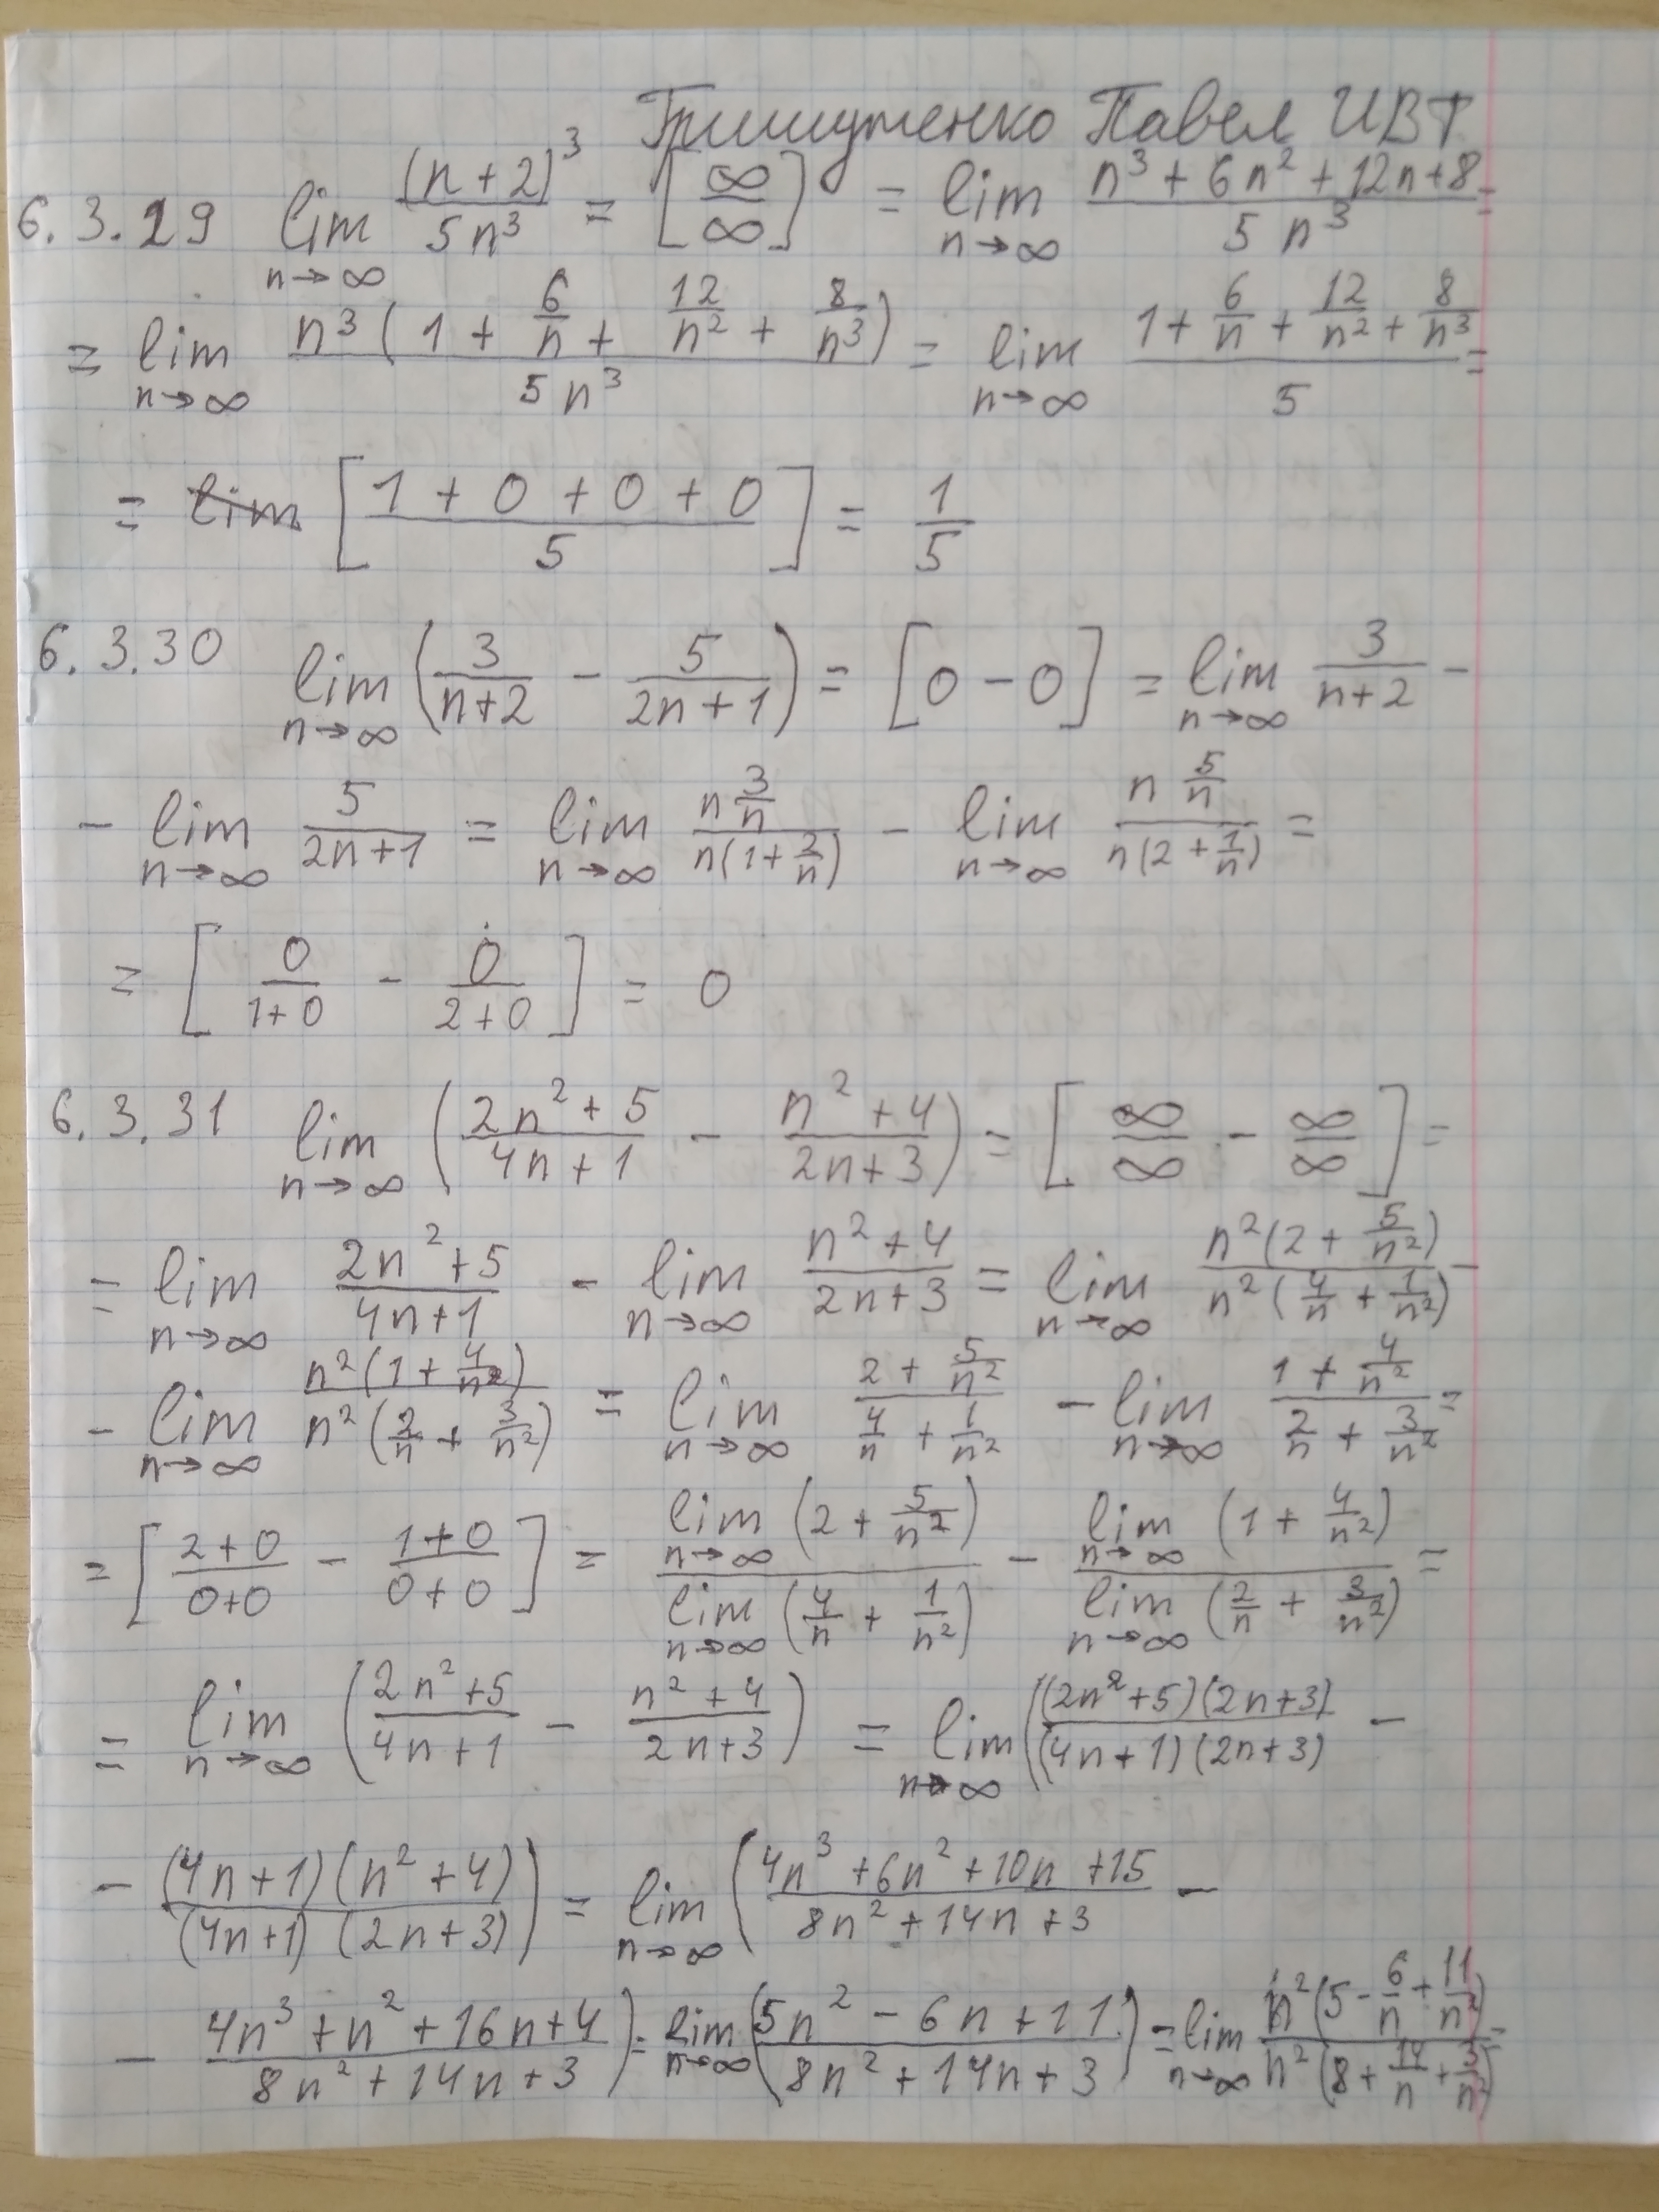 Гришутенко Павел ИВТ
6.3.29 lim_{n→∞} (n+2)^3/(5n^3) = [∞/∞] = lim_{n→∞} (n^3+6n^2+12n+8)/(5n^3) =
= lim_{n→∞} n^3(1+6/n+12/n^2+8/n^3)/(5n^3) = lim_{n→∞} (1+6/n+12/n^2+8/n^3)/5 =
= lim [(1+0+0+0)/5] = 1/5
6.3.30 lim_{n→∞} (3/(n+2) - 5/(2n+1)) = [0-0] = lim_{n→∞} 3/(n+2) -
- lim_{n→∞} 5/(2n+1) = lim_{n→∞} (n 3/n)/(n(1+2/n)) - lim_{n→∞} (n 5/n)/(n(2+1/n)) =
= [0/(1+0) - 0/(2+0)] = 0
6.3.31 lim_{n→∞} ((2n^2+5)/(4n+1) - (n^2+4)/(2n+3)) = [∞/∞ - ∞/∞] =
= lim_{n→∞} (2n^2+5)/(4n+1) - lim_{n→∞} (n^2+4)/(2n+3) = lim_{n→∞} n^2(2+5/n^2)/(n^2(4/n+1/n^2)) -
- lim_{n→∞} n^2(1+4/n^2)/(n^2(2/n+3/n^2)) = lim_{n→∞} (2+5/n^2)/(4/n+1/n^2) - lim_{n→∞} (1+4/n^2)/(2/n+3/n^2) =
= [(2+0)/(0+0) - (1+0)/(0+0)] = lim_{n→∞} (2+5/n^2)/lim_{n→∞} (4/n+1/n^2) - lim_{n→∞} (1+4/n^2)/lim_{n→∞} (2/n+3/n^2) =
= lim_{n→∞} ((2n^2+5)/(4n+1) - (n^2+4)/(2n+3)) = lim_{n→∞} ((2n^2+5)(2n+3)/((4n+1)(2n+3)) -
- (4n+1)(n^2+4)/((4n+1)(2n+3))) = lim_{n→∞} ((4n^3+6n^2+10n+15)/(8n^2+14n+3) -
- (4n^3+n^2+16n+4)/(8n^2+14n+3)) = lim_{n→∞} ((5n^2-6n+11)/(8n^2+14n+3)) = lim_{n→∞} n^2(5-6/n+11/n^2)/(n^2(8+14/n+3/n^2)) =